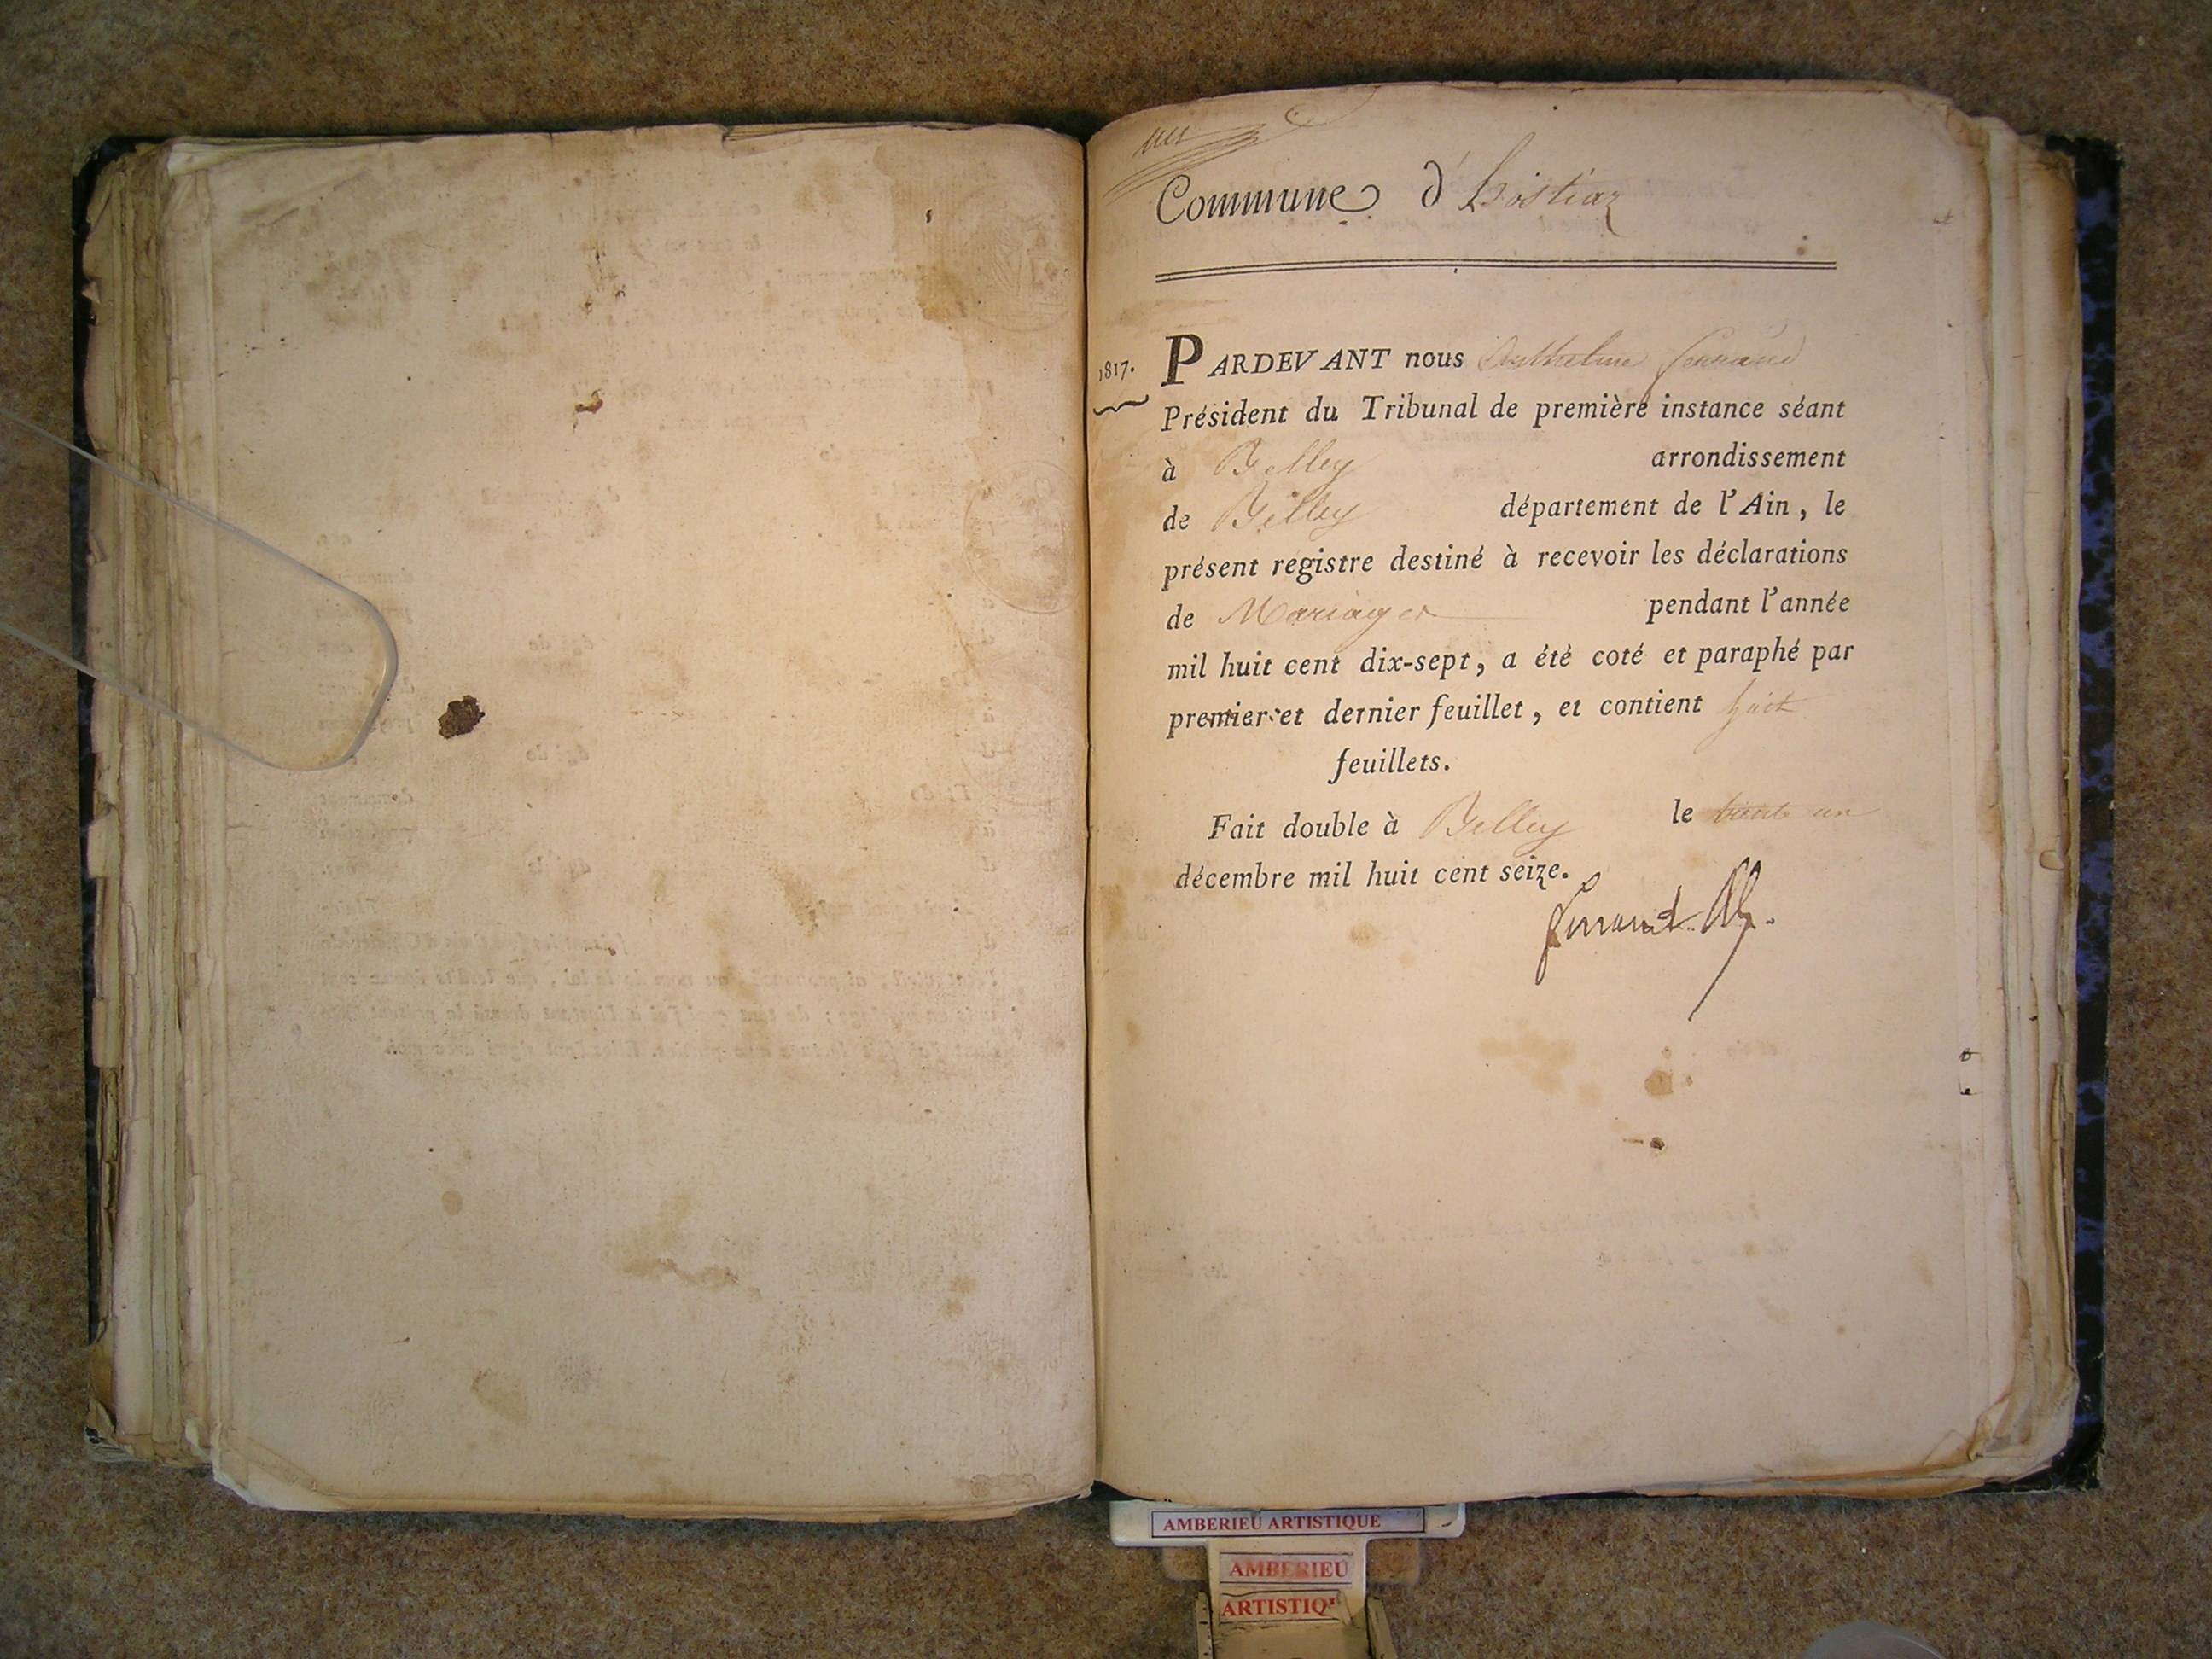 Commune d'hostiaz
1817.
PARDEVANT nous Anthelme Ferrand
Président du Tribunal de première instance séant
à Belley arrondissement
de Belley département de l'Ain, le
présent registre destiné à recevoir les déclarations
de Mariages pendant l'année
mil huit cent dix-sept, a été coté et paraphé par
premier et dernier feuillet, et contient huit
feuillets.
Fait double à Belley le trente un
décembre mil huit cent seize.
Ferrand
AMBERIEU ARTISTIQUE
AMBERIEU
ARTISTIQ